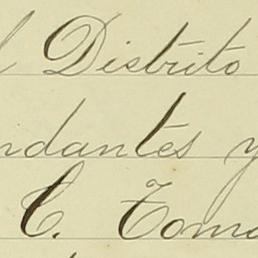 l Distrito
ndantes y
C. Toma